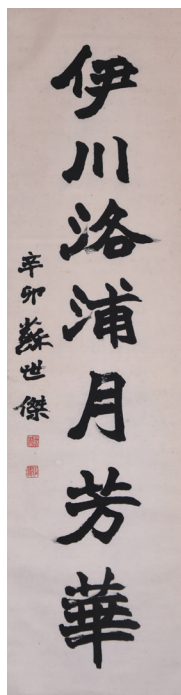 伊川洛浦月芳華
辛卯蘇世傑